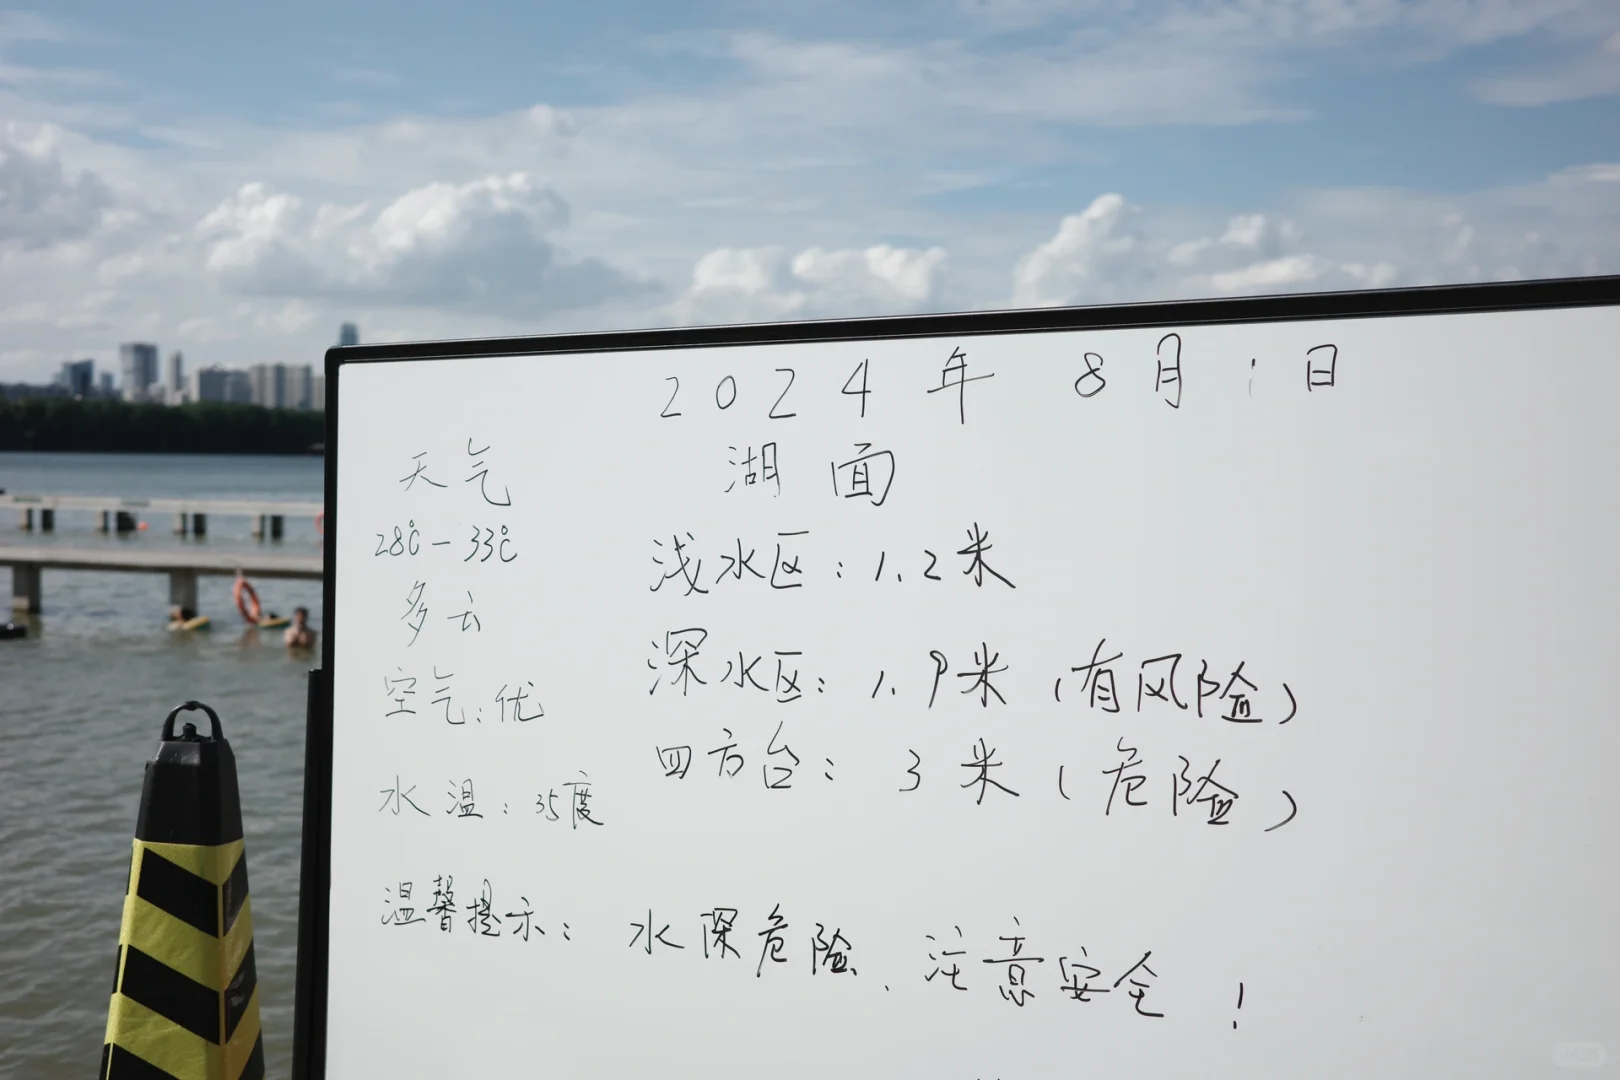 2024年 8月1日
天气
28℃-33℃
多云
空气:优
水温:35度
湖面
浅水区:1.2米
深水区:1.9米(有风险)
四方台:3米(危险)
温馨提示:水深危险、注意安全!